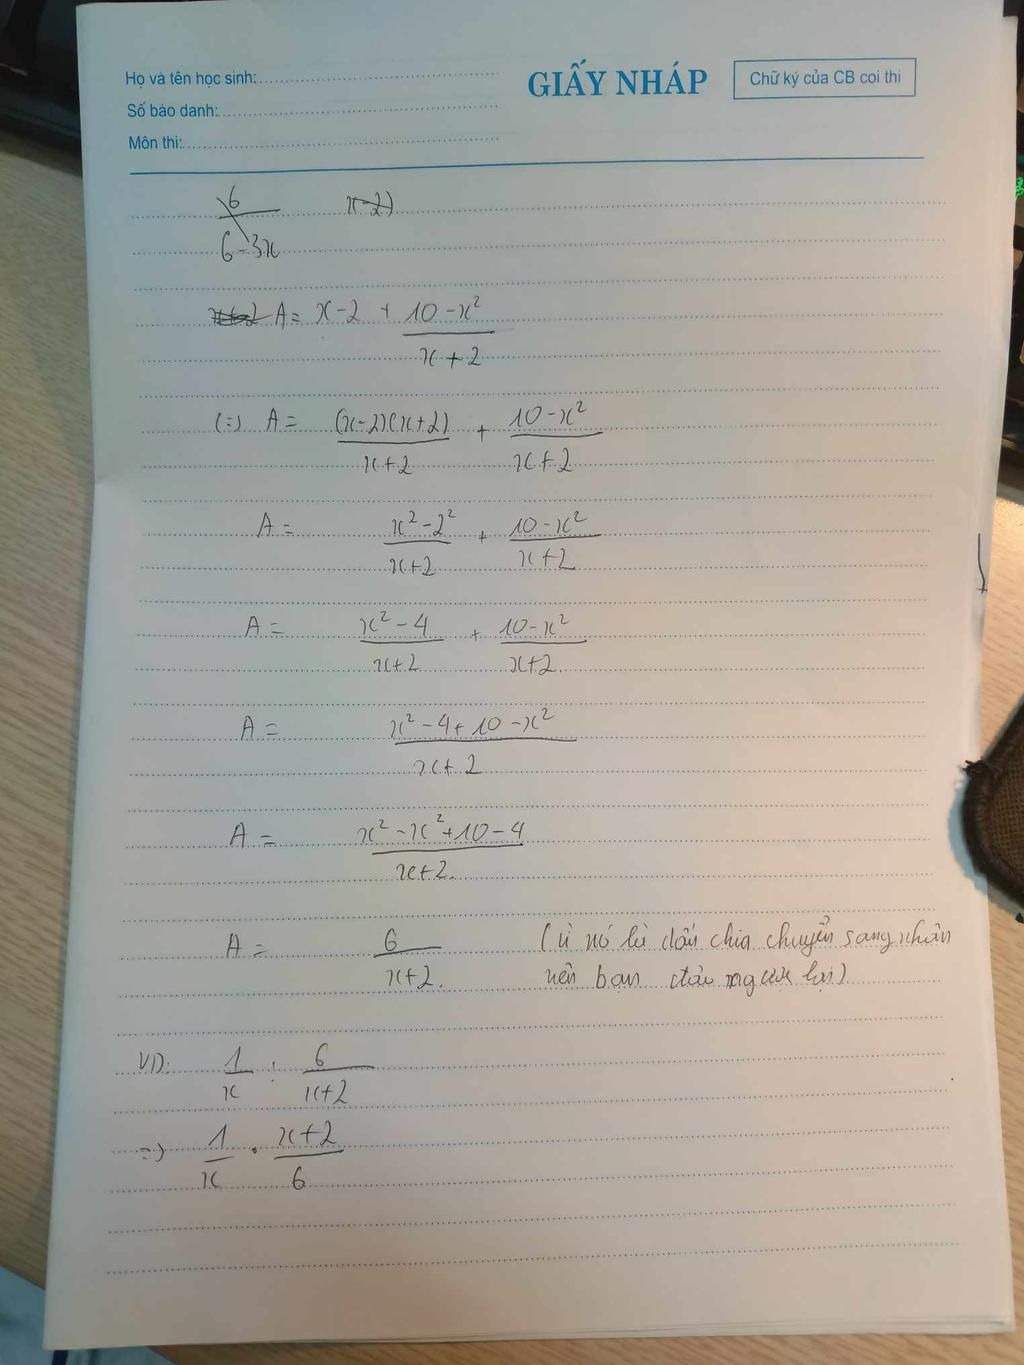 Họ và tên học sinh:
GIẤY NHÁP
Chữ ký của CB coi thi
Số báo danh:
Môn thi:
6/(6-3x) x-2)
A = x-2 + (10-x²)/(x+2)
(=) A = (x-2)(x+2)/(x+2) + (10-x²)/(x+2)
A = (x²-2²)/(x+2) + (10-x²)/(x+2)
A = (x²-4)/(x+2) + (10-x²)/(x+2)
A = (x²-4+10-x²)/(x+2)
A = (x²-x²+10-4)/(x+2)
A = 6/(x+2) (vì nó là dấu chia chuyển sang nhân
nên bạn đảo ngược lại)
VD: 1/x : 6/(x+2)
=) 1/x . (x+2)/6